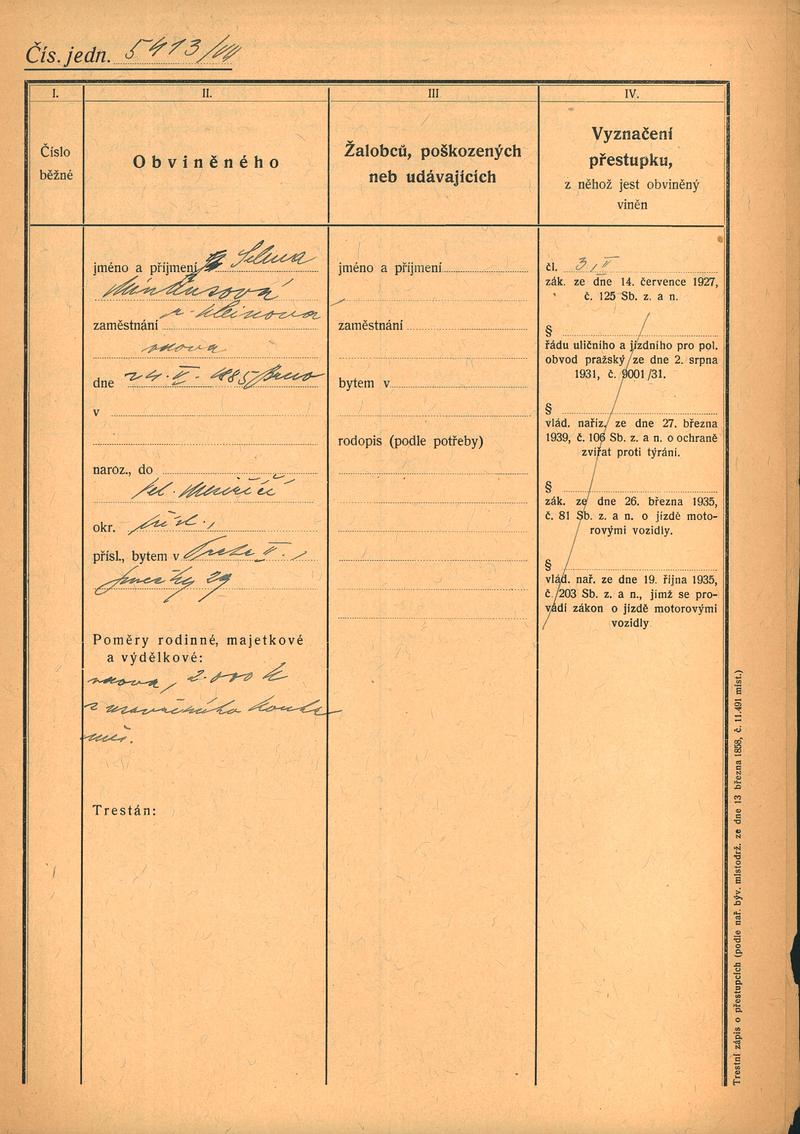 Čís. jedn. 5413/VII
I.
II.
III
IV.
Číslo
běžné
Obviněného
Žalobců, poškozených
neb udávajících
Vyznačení
přestupku,
z něhož jest obviněný
viněn
jméno a příjmení Selma
Minkusová
r. Kleinová
zaměstnání
vdova
dne 24. V. 1885 Brno
v
naroz., do
Vel. Meziříčí
okr.
přísl., bytem v II.,
29
Poměry rodinné, majetkové
a výdělkové:
vdova, 2.000 K
z konta
měs.
Trestán:
jméno a příjmení
zaměstnání
bytem v
rodopis (podle potřeby)
čl. 3, II
zák. ze dne 14. července 1927,
č. 125 Sb. z. a n.
§
řádu uličního a jízdního pro pol.
obvod pražský ze dne 2. srpna
1931, č. 9001/31.
§
vlád. naříz. ze dne 27. března
1939, č. 106 Sb. z. a n. o ochraně
zvířat proti týrání.
§
zák. ze dne 26. března 1935,
č. 81 Sb. z. a n. o jízdě moto-
rovými vozidly.
§
vlád. nař. ze dne 19. října 1935,
č. 203 Sb. z. a n., jímž se pro-
vádí zákon o jízdě motorovými
vozidly
Trestní zápis o přestupcích (podle nař. býv. místodrž. ze dne 13 března 1858, č. 11.491 míst.)